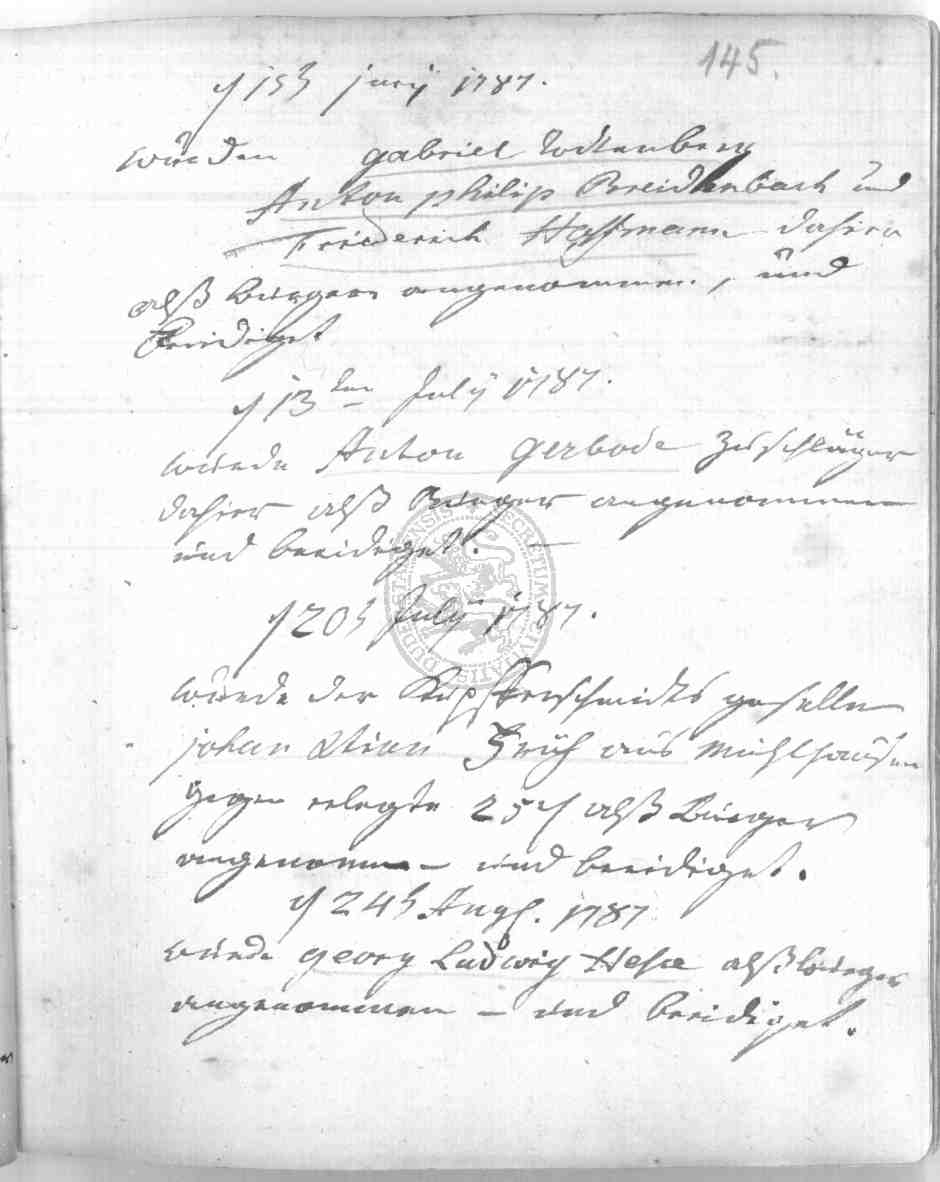 145.
d 15t juny 1787.
wurden gabriel Wittenberg
Anton philip Breidenbach und
Friederich Hoffmann dahier
alß bürgere angenommen, und
beeidiget
d 13ten July 1787.
wurde Anton gerbode Zuschläger
dahier alß Bürger angenommen
und beeidiget. —
d 20t July 1787.
wurde der Kupferschmidts geselle
johan früh aus Mühlhausen
gegen erlegte 25 alß Bürger
angenomm— und beeidiget.
d 24t Augs. 1787
wurde georg Ludwig Hesse alß bürger
angenommen — und beeidiget.